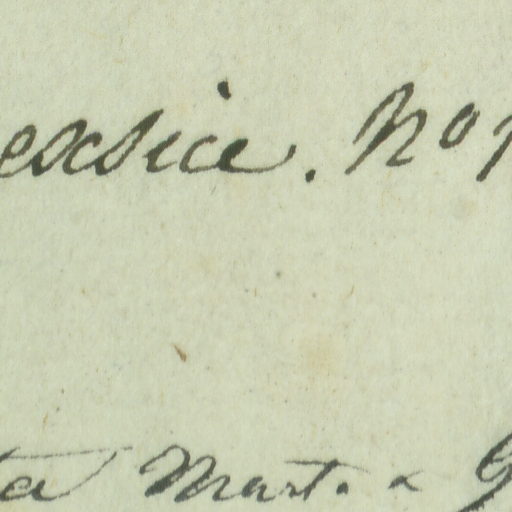 exsicc. No
ta Mart. & G